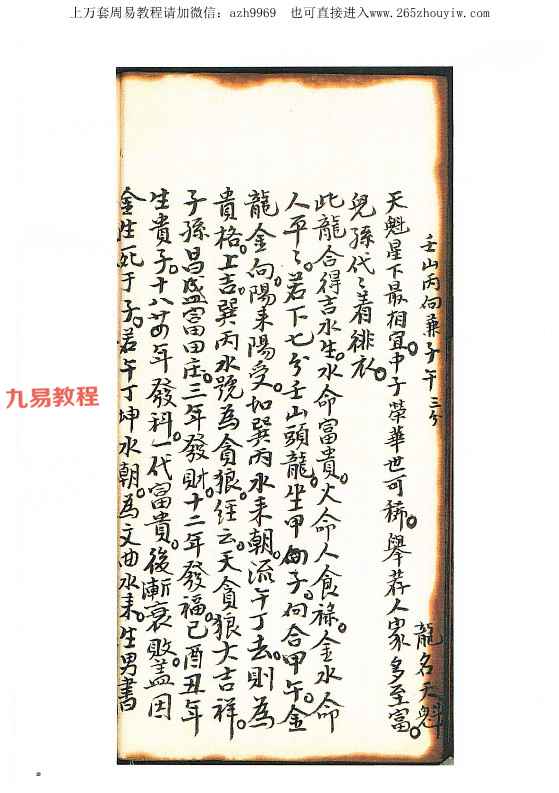 上万套周易教程请加微信：azh9969　也可直接进入www.265zhouyiw.com
壬山丙向兼子午三分
龍名天魁
天魁星下最相宜。中子榮華世可稀。舉荐人家多至富。
兒孫代〻着緋衣。
此龍合得吉水生。水命富貴。火命人食祿。金水命
人平〻。若下七分壬山頭龍。坐甲子。向合甲午。金
龍金向。陽来陽受。如巽丙水来朝。流午丁去。則為
貴格。上吉。巽丙水號為貪狼。經云。天貪狼大吉祥。
子孫昌盛富田庄。三年發財。十二年發福。巳酉丑年
生貴子。十八廿四年發科。一代富貴。後漸衰敗。蓋因
金性死于子。若午丁坤水朝。為文曲水来。生男書
九易教程